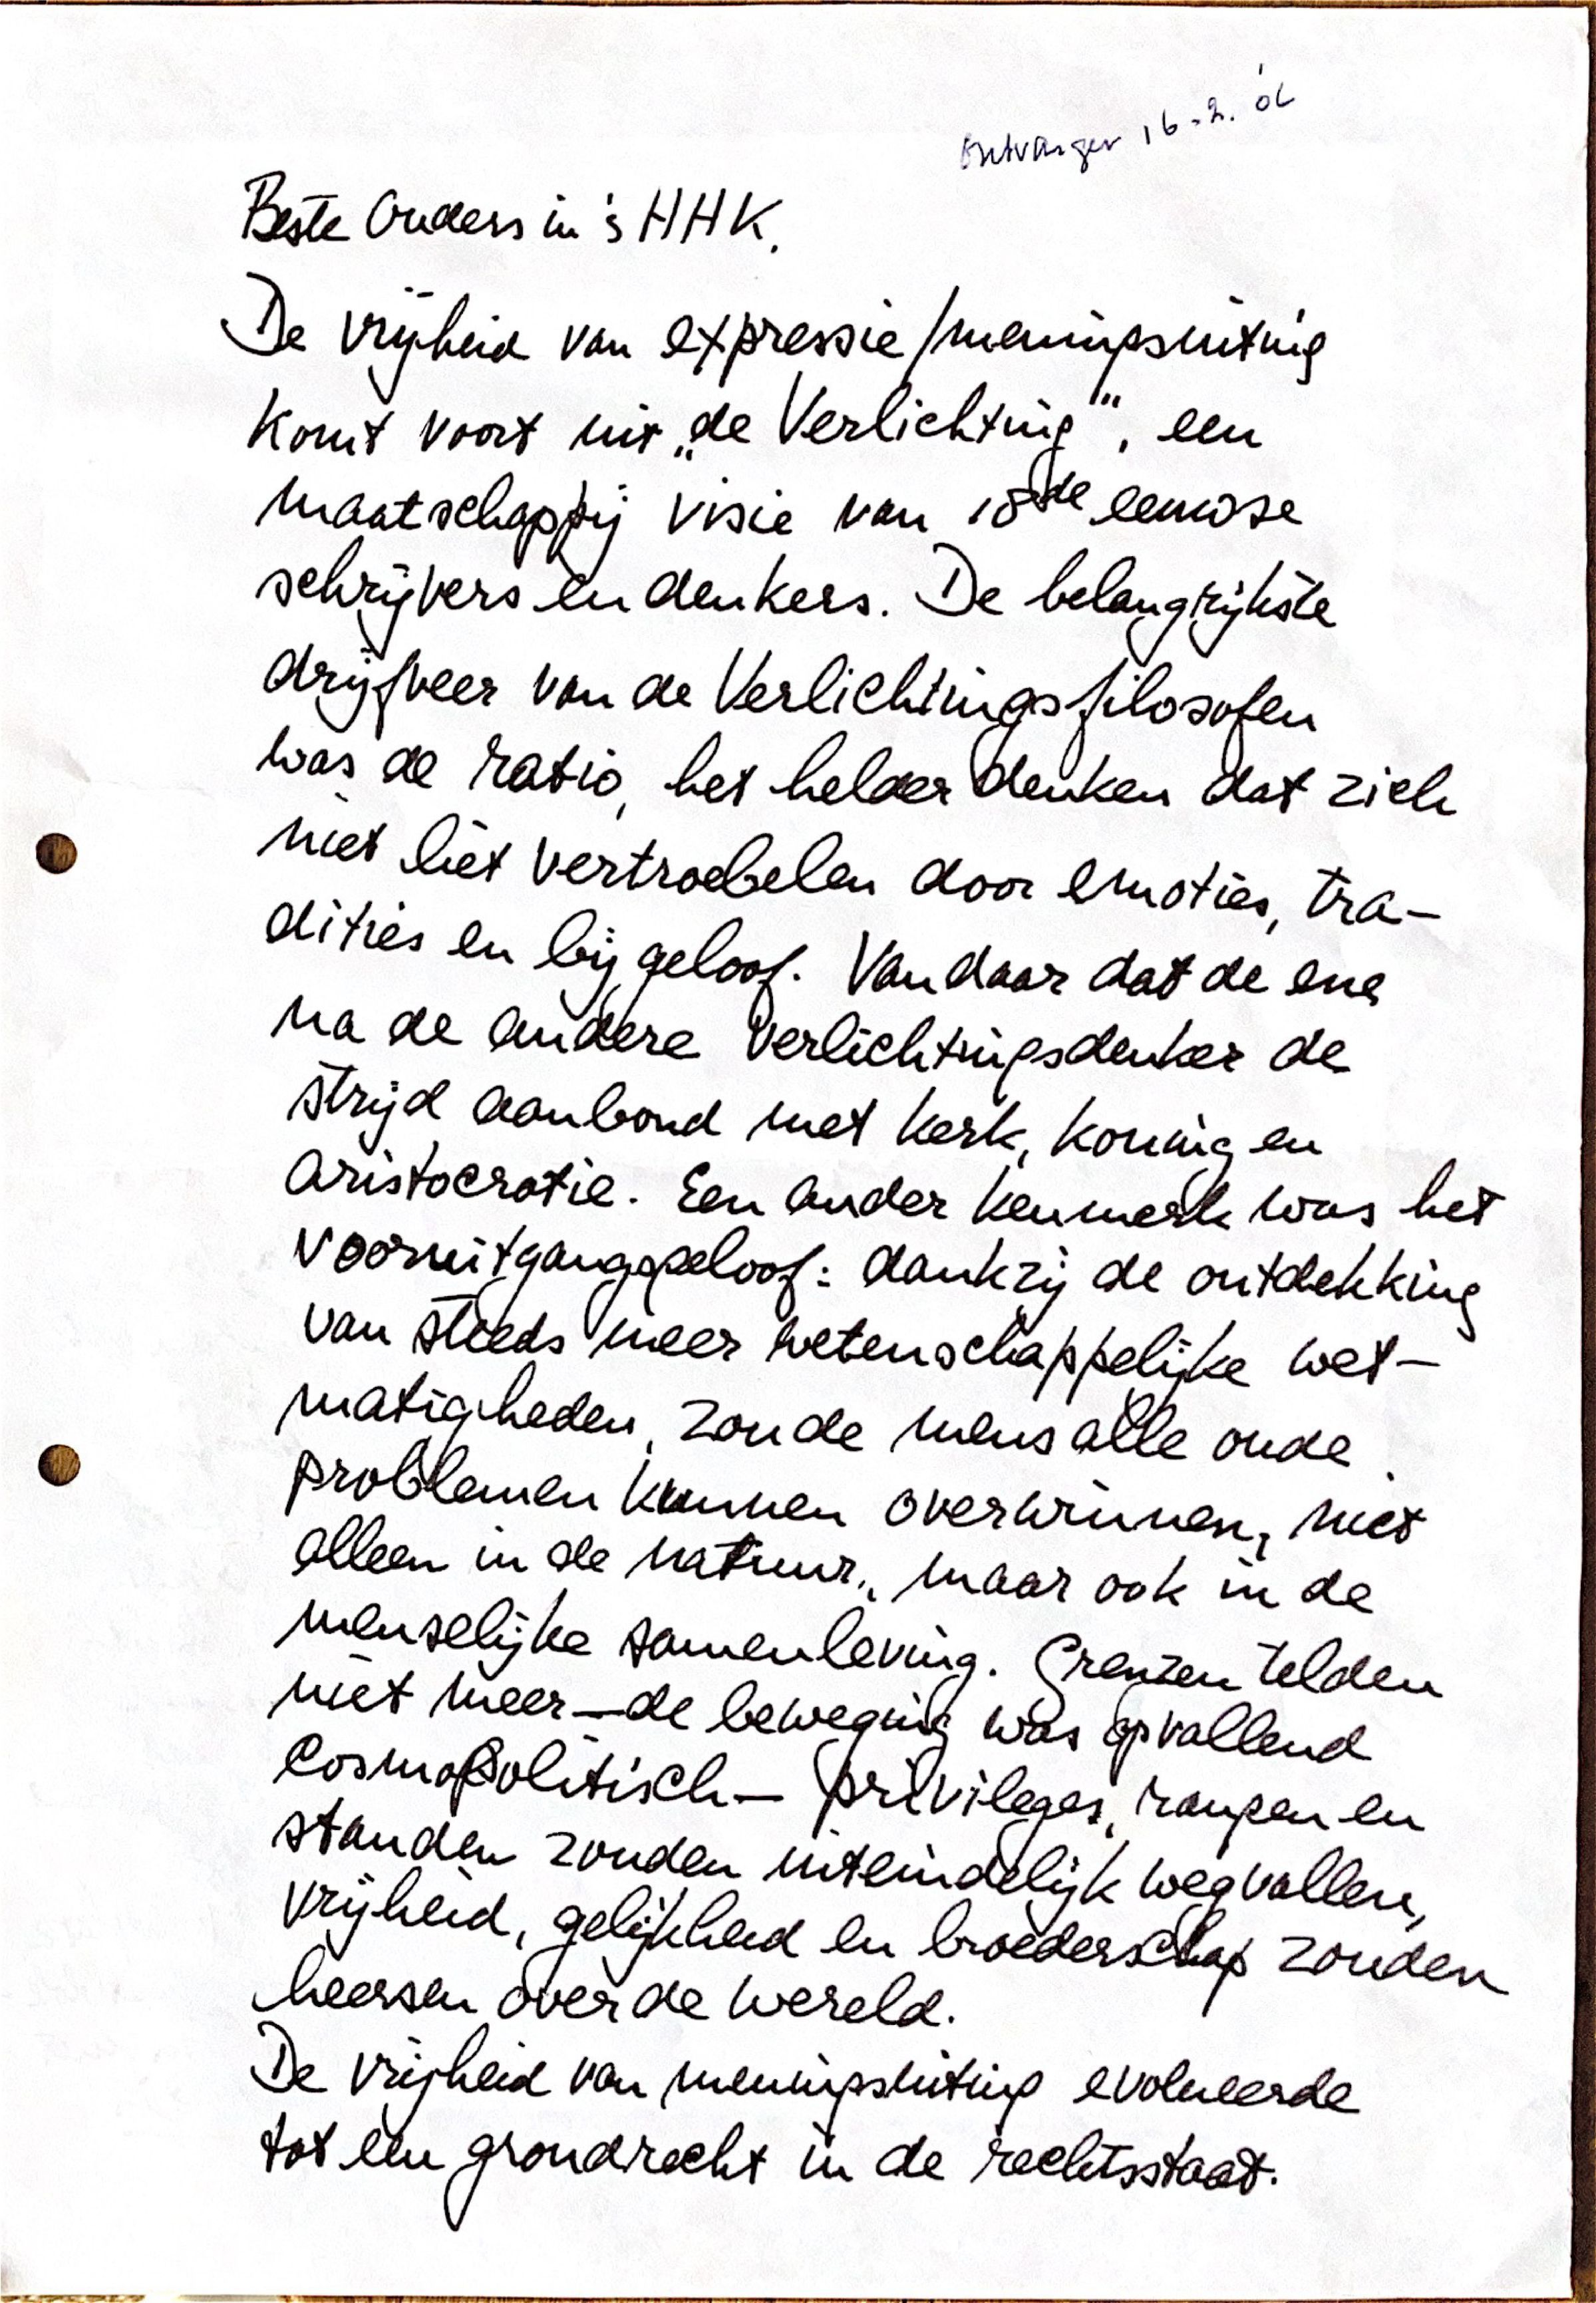 ontvangen 16-2. '06
Beste Ouders in 's HHK.
De vrijheid van expressie/meningsuiting
komt voort uit „de Verlichting", een
maatschappij visie van 18de eeuwse
schrijvers en denkers. De belangrijkste
drijfveer van de Verlichtingsfilosofen
was de ratio, het helder denken dat zich
niet liet vertroebelen door emoties, tra-
dities en bijgeloof. Vandaar dat de ene
na de andere verlichtingsdenker de
strijd aanbond met kerk, koning en
aristocratie. Een ander kenmerk was het
vooruitgangsgeloof: dankzij de ontdekking
van steeds meer wetenschappelijke wet-
matigheden, zou de mens alle oude
problemen kunnen overwinnen, niet
alleen in de natuur, maar ook in de
menselijke samenleving. Grenzen telden
niet meer — de beweging was opvallend
cosmopolitisch — privileges, rangen en
standen zouden uiteindelijk wegvallen,
vrijheid, gelijkheid en broederschap zouden
heersen over de wereld.
De vrijheid van meningsuiting evolueerde
tot een grondrecht in de rechtsstaat.